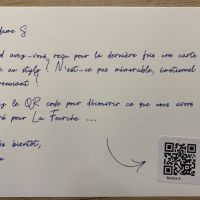 dame S
d avez-vous reçu pour la dernière fois une carte
e au stylo ? N'est-ce pas mémorable, émotionnel
érenciant ?
ez le QR code pour découvrir ce que nous avons
ré pour La Fourche ...
ès bientôt,